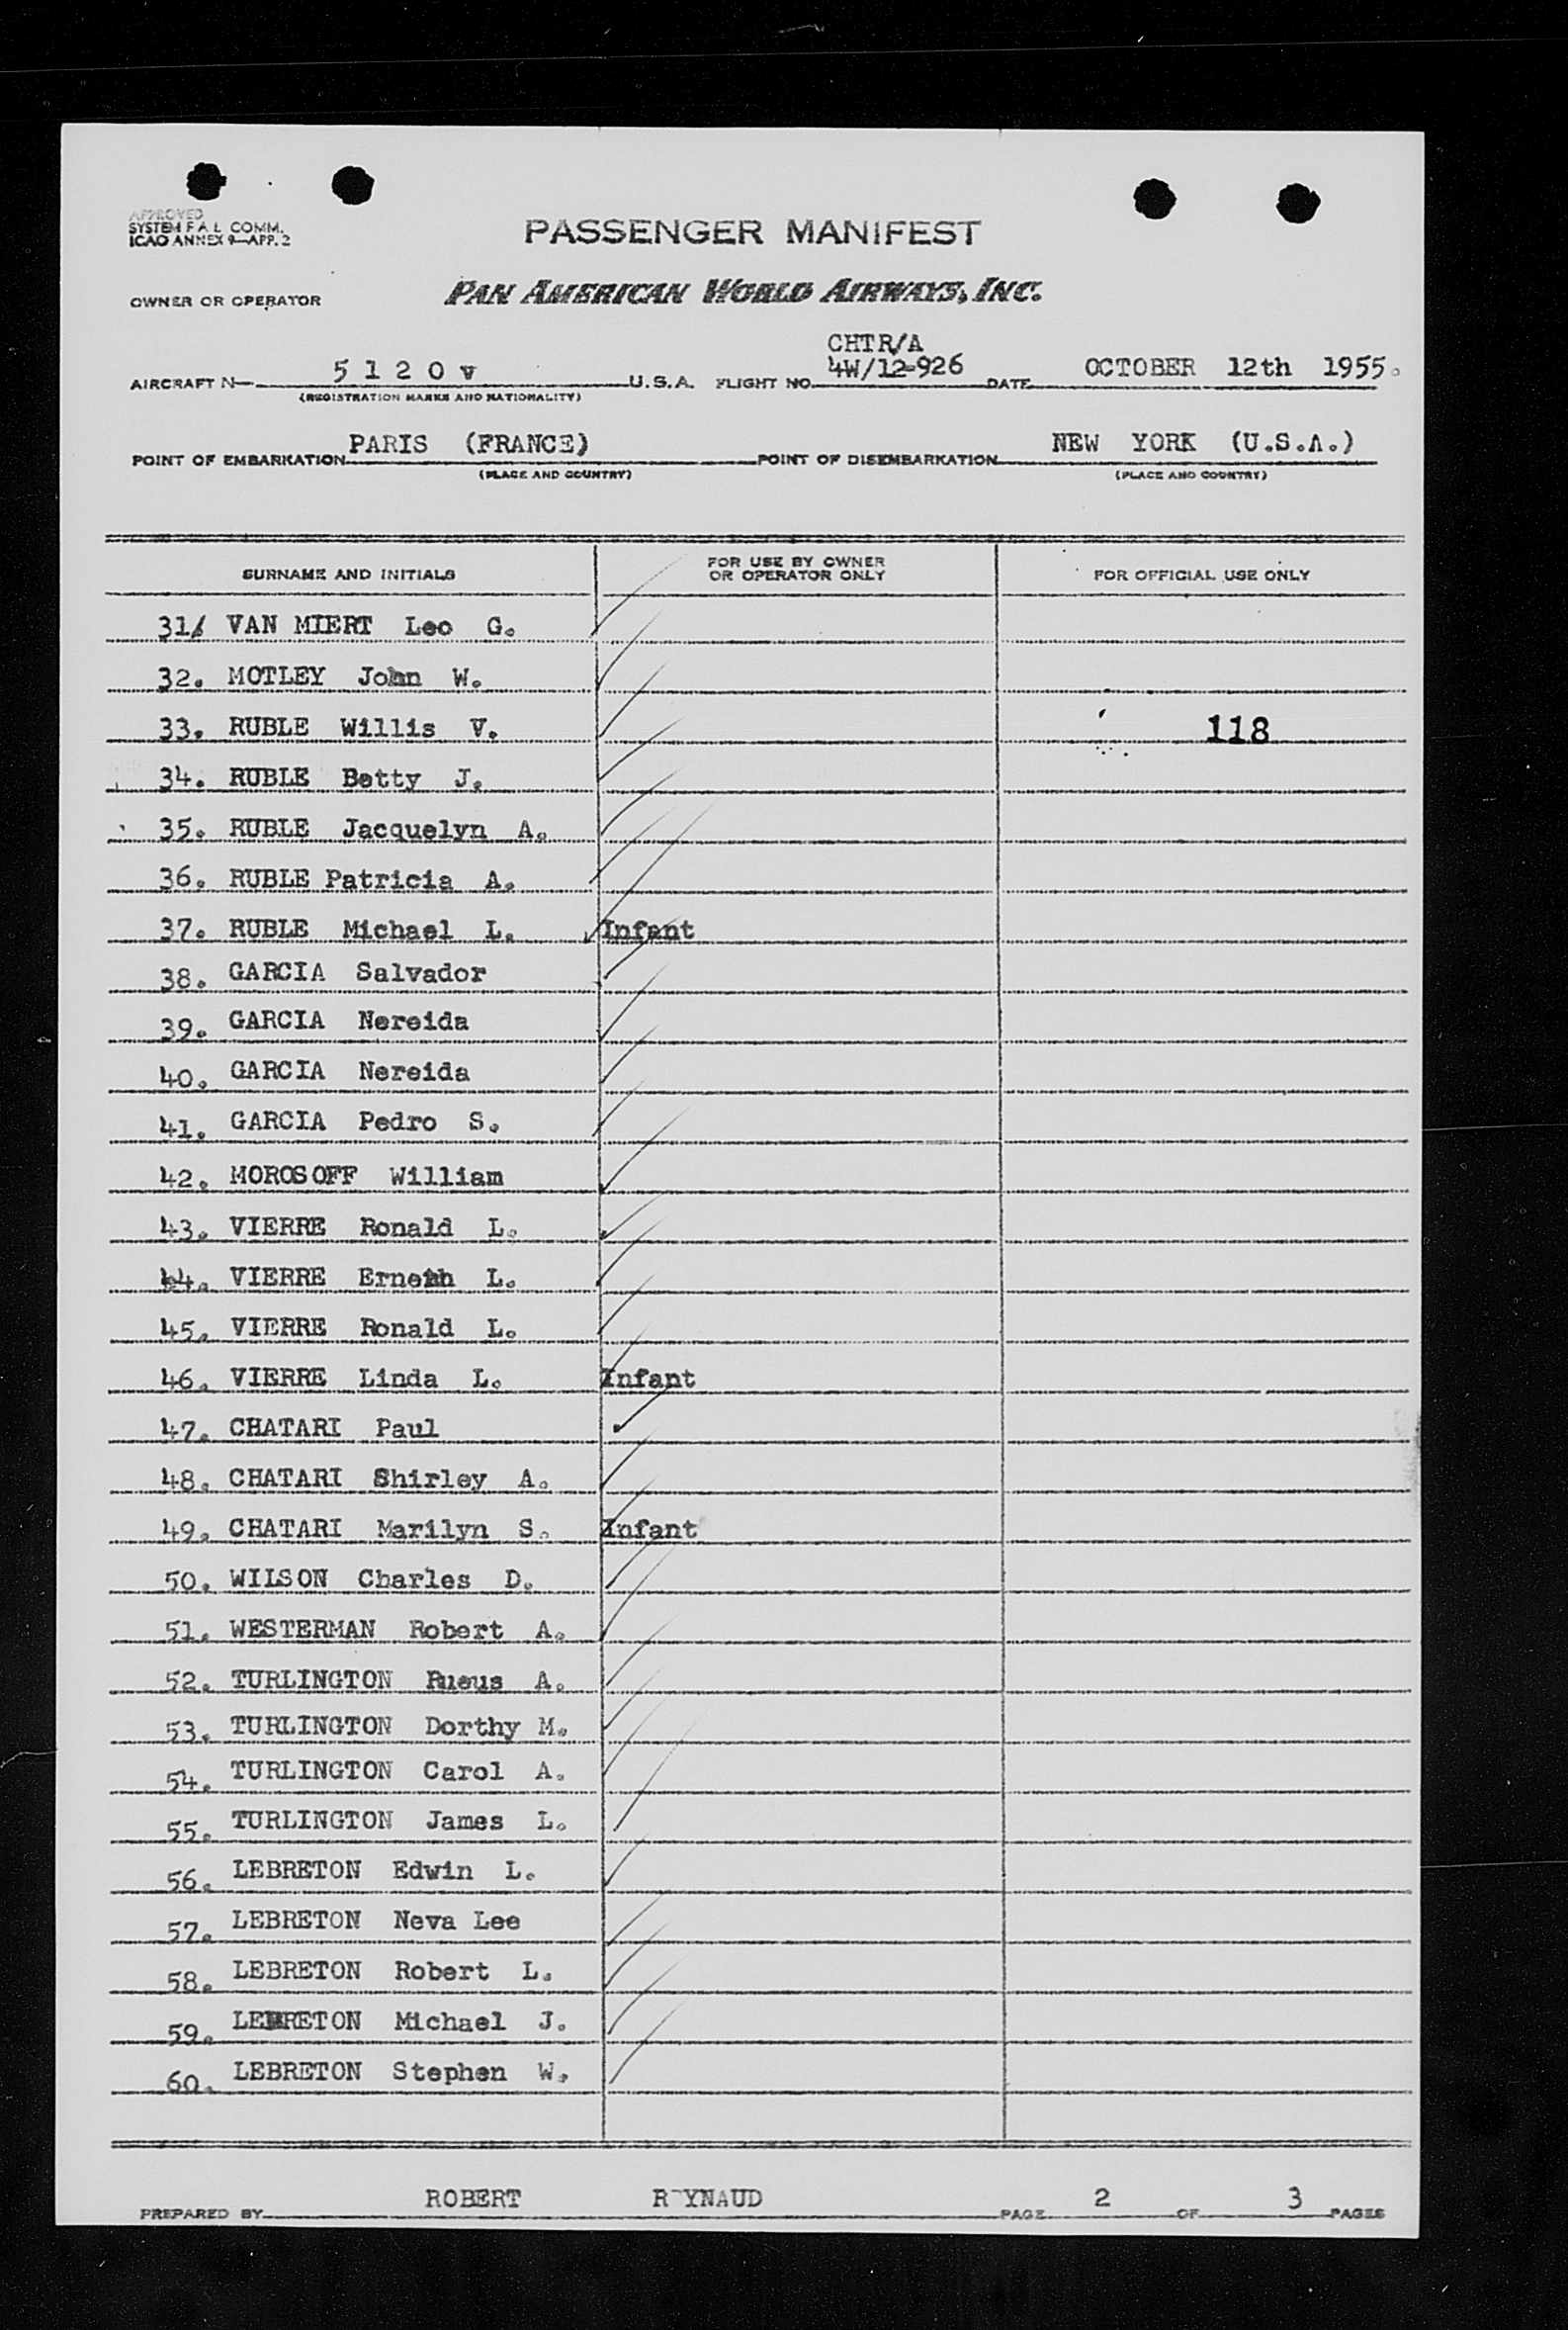 APPROVED
SYSTEM F A L COMM.
ICAO ANNEX 9—APP. 2
PASSENGER MANIFEST
OWNER OR OPERATOR
PAN AMERICAN WORLD AIRWAYS, INC.
CHTR/A
AIRCRAFT N— 5 1 2 0 v U.S.A. FLIGHT NO. 4W/12-926 DATE OCTOBER 12th 1955.
(REGISTRATION MARKS AND NATIONALITY)
POINT OF EMBARKATION PARIS (FRANCE) POINT OF DISEMBARKATION NEW YORK (U.S.A.)
(PLACE AND COUNTRY) (PLACE AND COUNTRY)
SURNAME AND INITIALS FOR USE BY OWNER OR OPERATOR ONLY FOR OFFICIAL USE ONLY
31. VAN MIERT Leo G.
32. MOTLEY John W.
33. RUBLE Willis V. 118
34. RUBLE Betty J.
35. RUBLE Jacquelyn A.
36. RUBLE Patricia A.
37. RUBLE Michael L. Infant
38. GARCIA Salvador
39. GARCIA Nereida
40. GARCIA Nereida
41. GARCIA Pedro S.
42. MOROSOFF William
43. VIERRE Ronald L.
44. VIERRE L.
45. VIERRE Ronald L.
46. VIERRE Linda L. Infant
47. CHATARI Paul
48. CHATARI Shirley A.
49. CHATARI Marilyn S. Infant
50. WILSON Charles D.
51. WESTERMAN Robert A.
52. TURLINGTON A.
53. TURLINGTON Dorthy M.
54. TURLINGTON Carol A.
55. TURLINGTON James L.
56. LEBRETON Edwin L.
57. LEBRETON Neva Lee
58. LEBRETON Robert L.
59. LEBRETON Michael J.
60. LEBRETON Stephen W.
PREPARED BY ROBERT R YNAUD PAGE 2 OF 3 PAGES